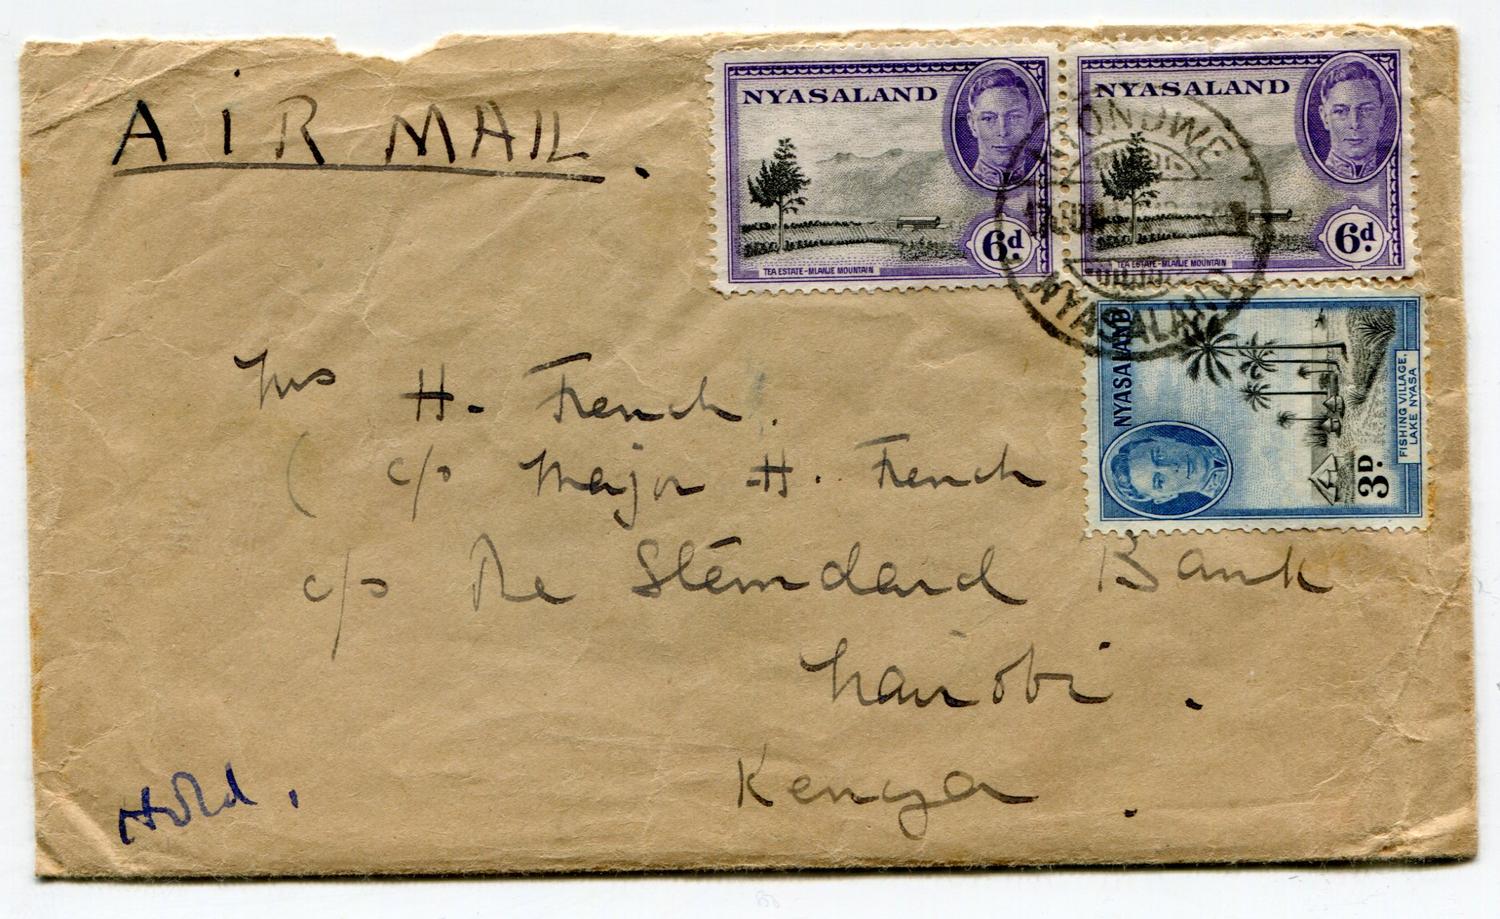 AIR MAIL.
NYASALAND
6d.
TEA ESTATE-MLANJE MOUNTAIN
NYASALAND
6d.
TEA ESTATE-MLANJE MOUNTAIN
NYASALAND
NYASALAND
3D.
FISHING VILLAGE,
LAKE NYASA
Mrs H. French.
( c/o Major H. French
c/o The Standard Bank
Nairobi.
Kenya.
Hold.